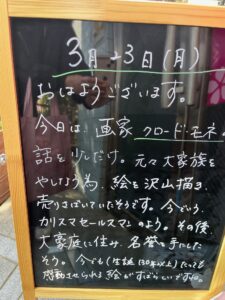 3月23日(月)
おはようございます。
今日は、画家 クロード・モネ。
話を少しだけ。元々大家族を
やしなう為、絵を沢山描き、
売りさばいていたそうです。今でいう
カリスマセールスマンのよう。その後、
大豪庭に住み、名誉も手にした
そう。今でも(生誕130年以上)たっても
感動させられる絵がすばらしいですね。